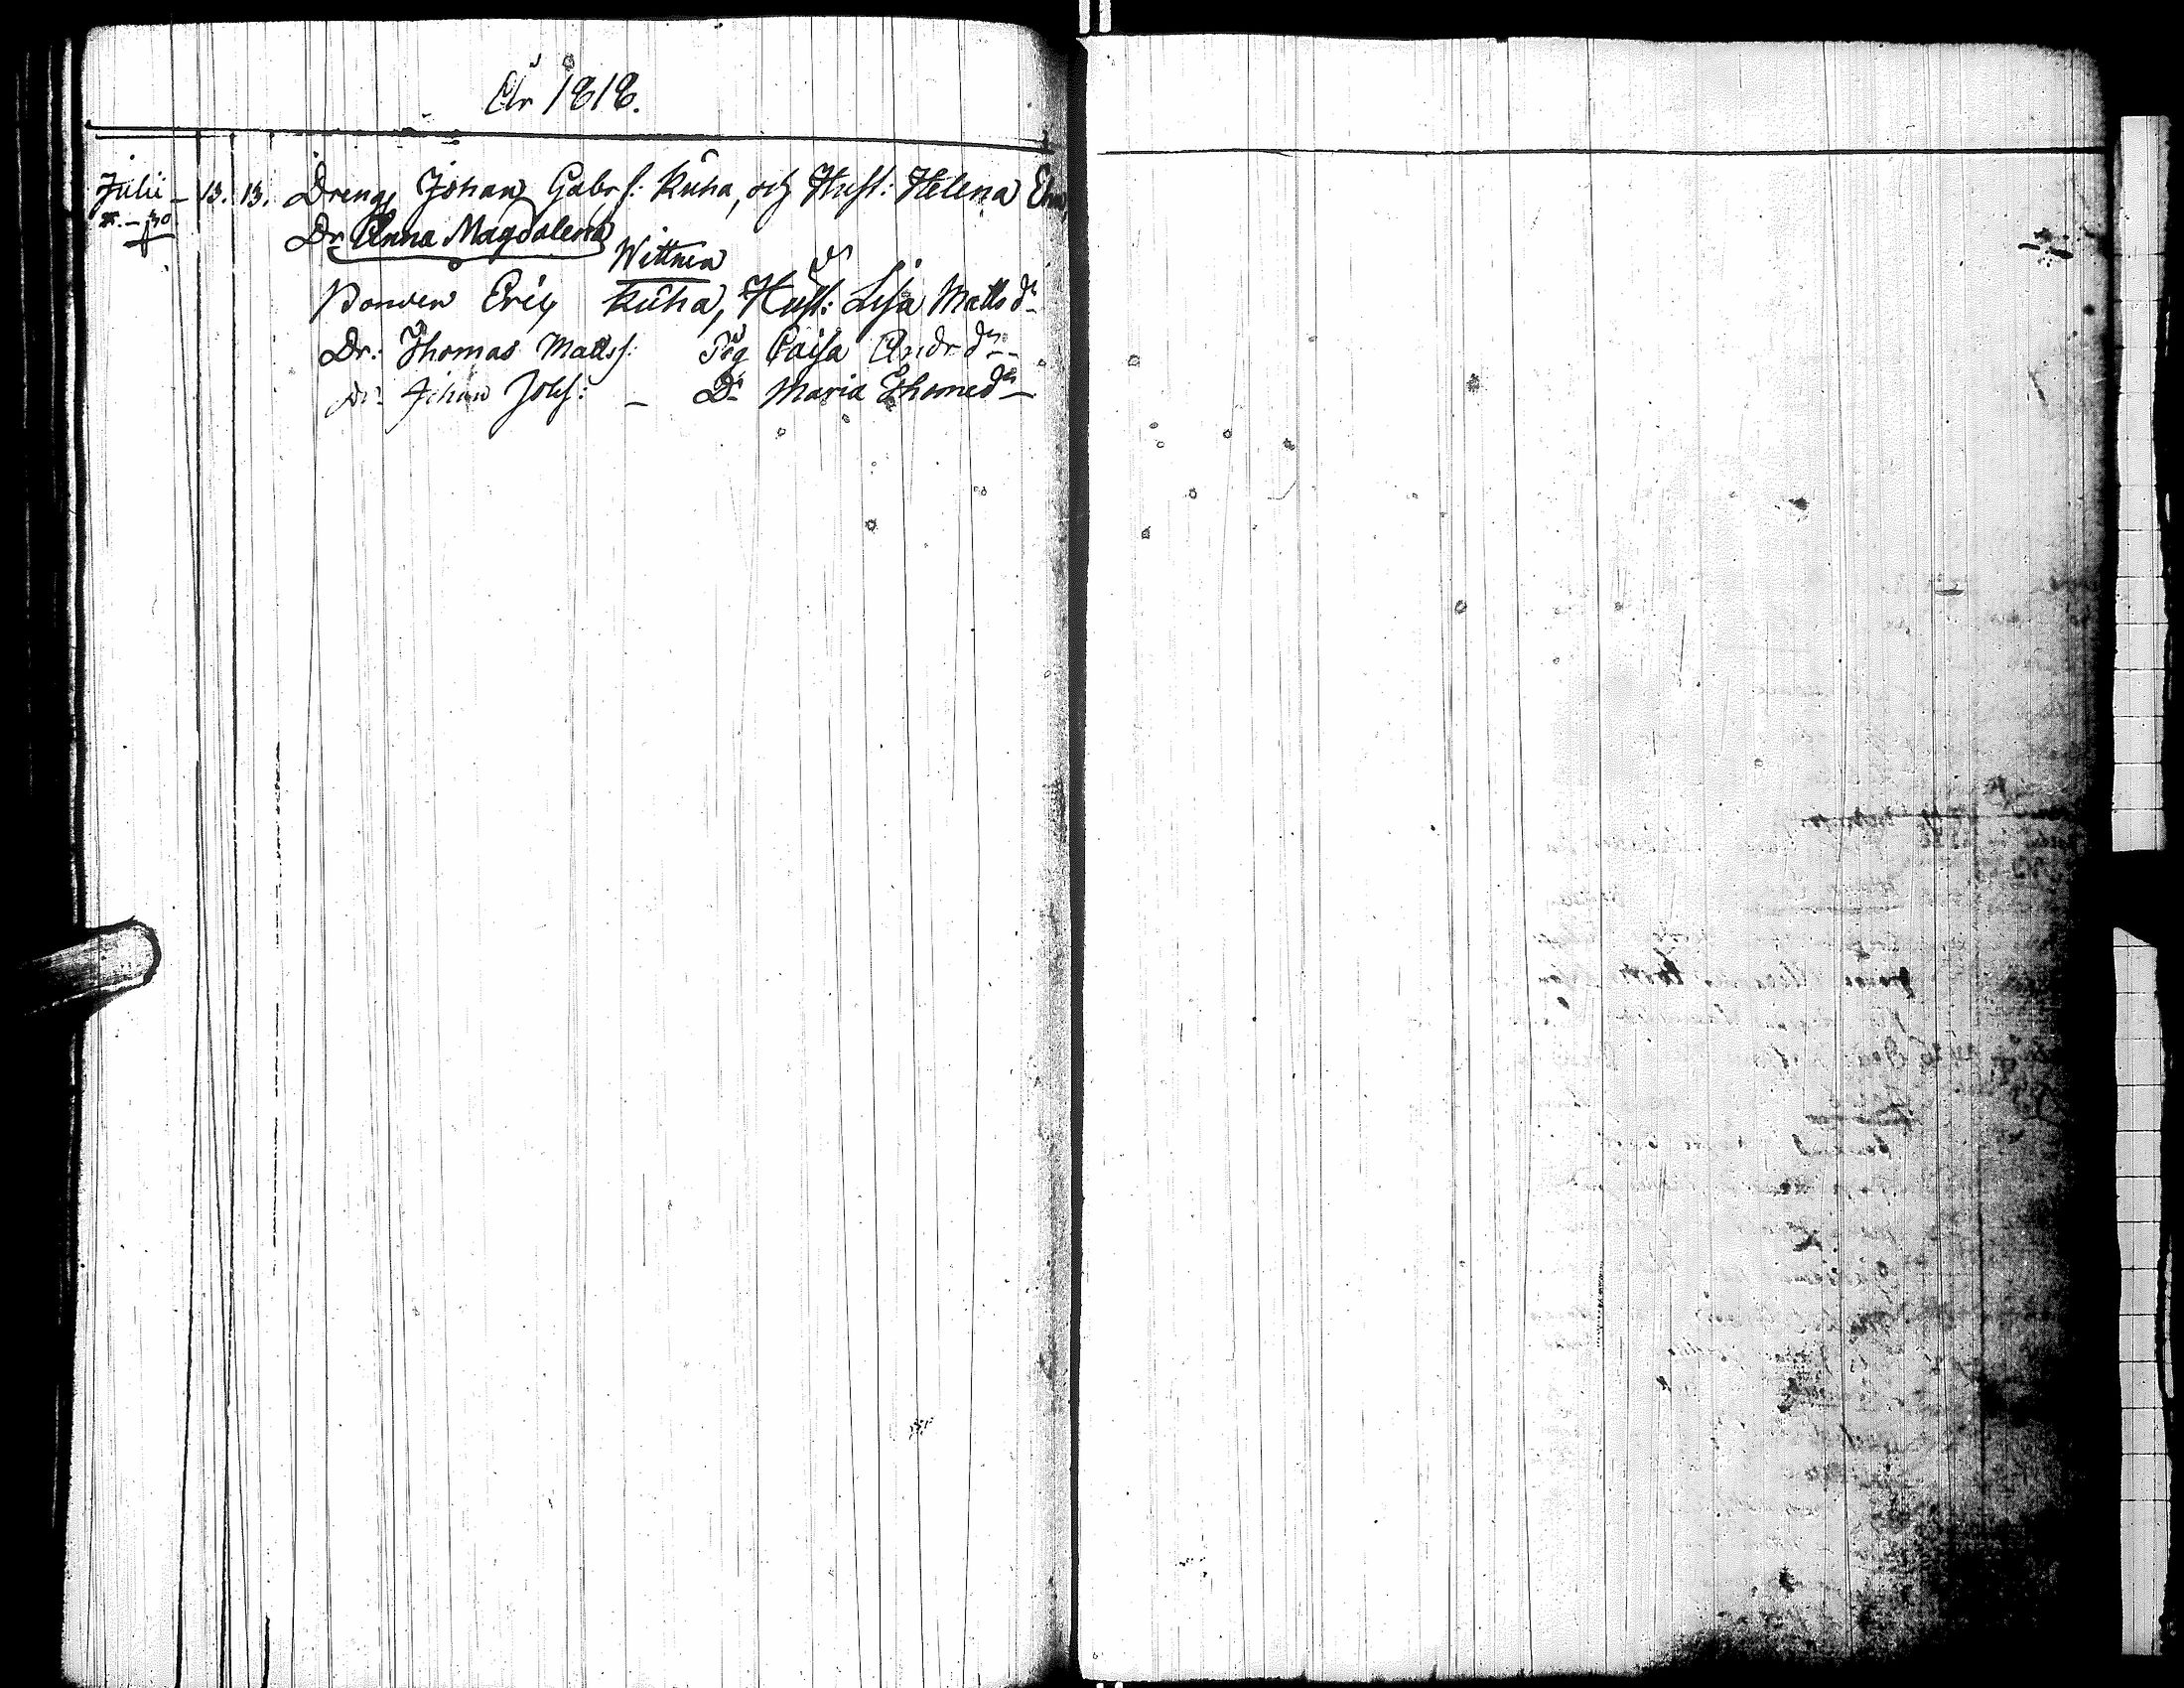 År 1818.
Julii - 13. 13. Dreng Johan Gabrs: Kuha, och Hust: Helena
Dr Anna Magdalena
Wittnen
Bonden Eric Kuha, Hust: Lisa Matts dr
Dr: Thomas Matss: Pig Caisa Andr dr
Dr: Johan Johs: - Dr Maria Thomedr